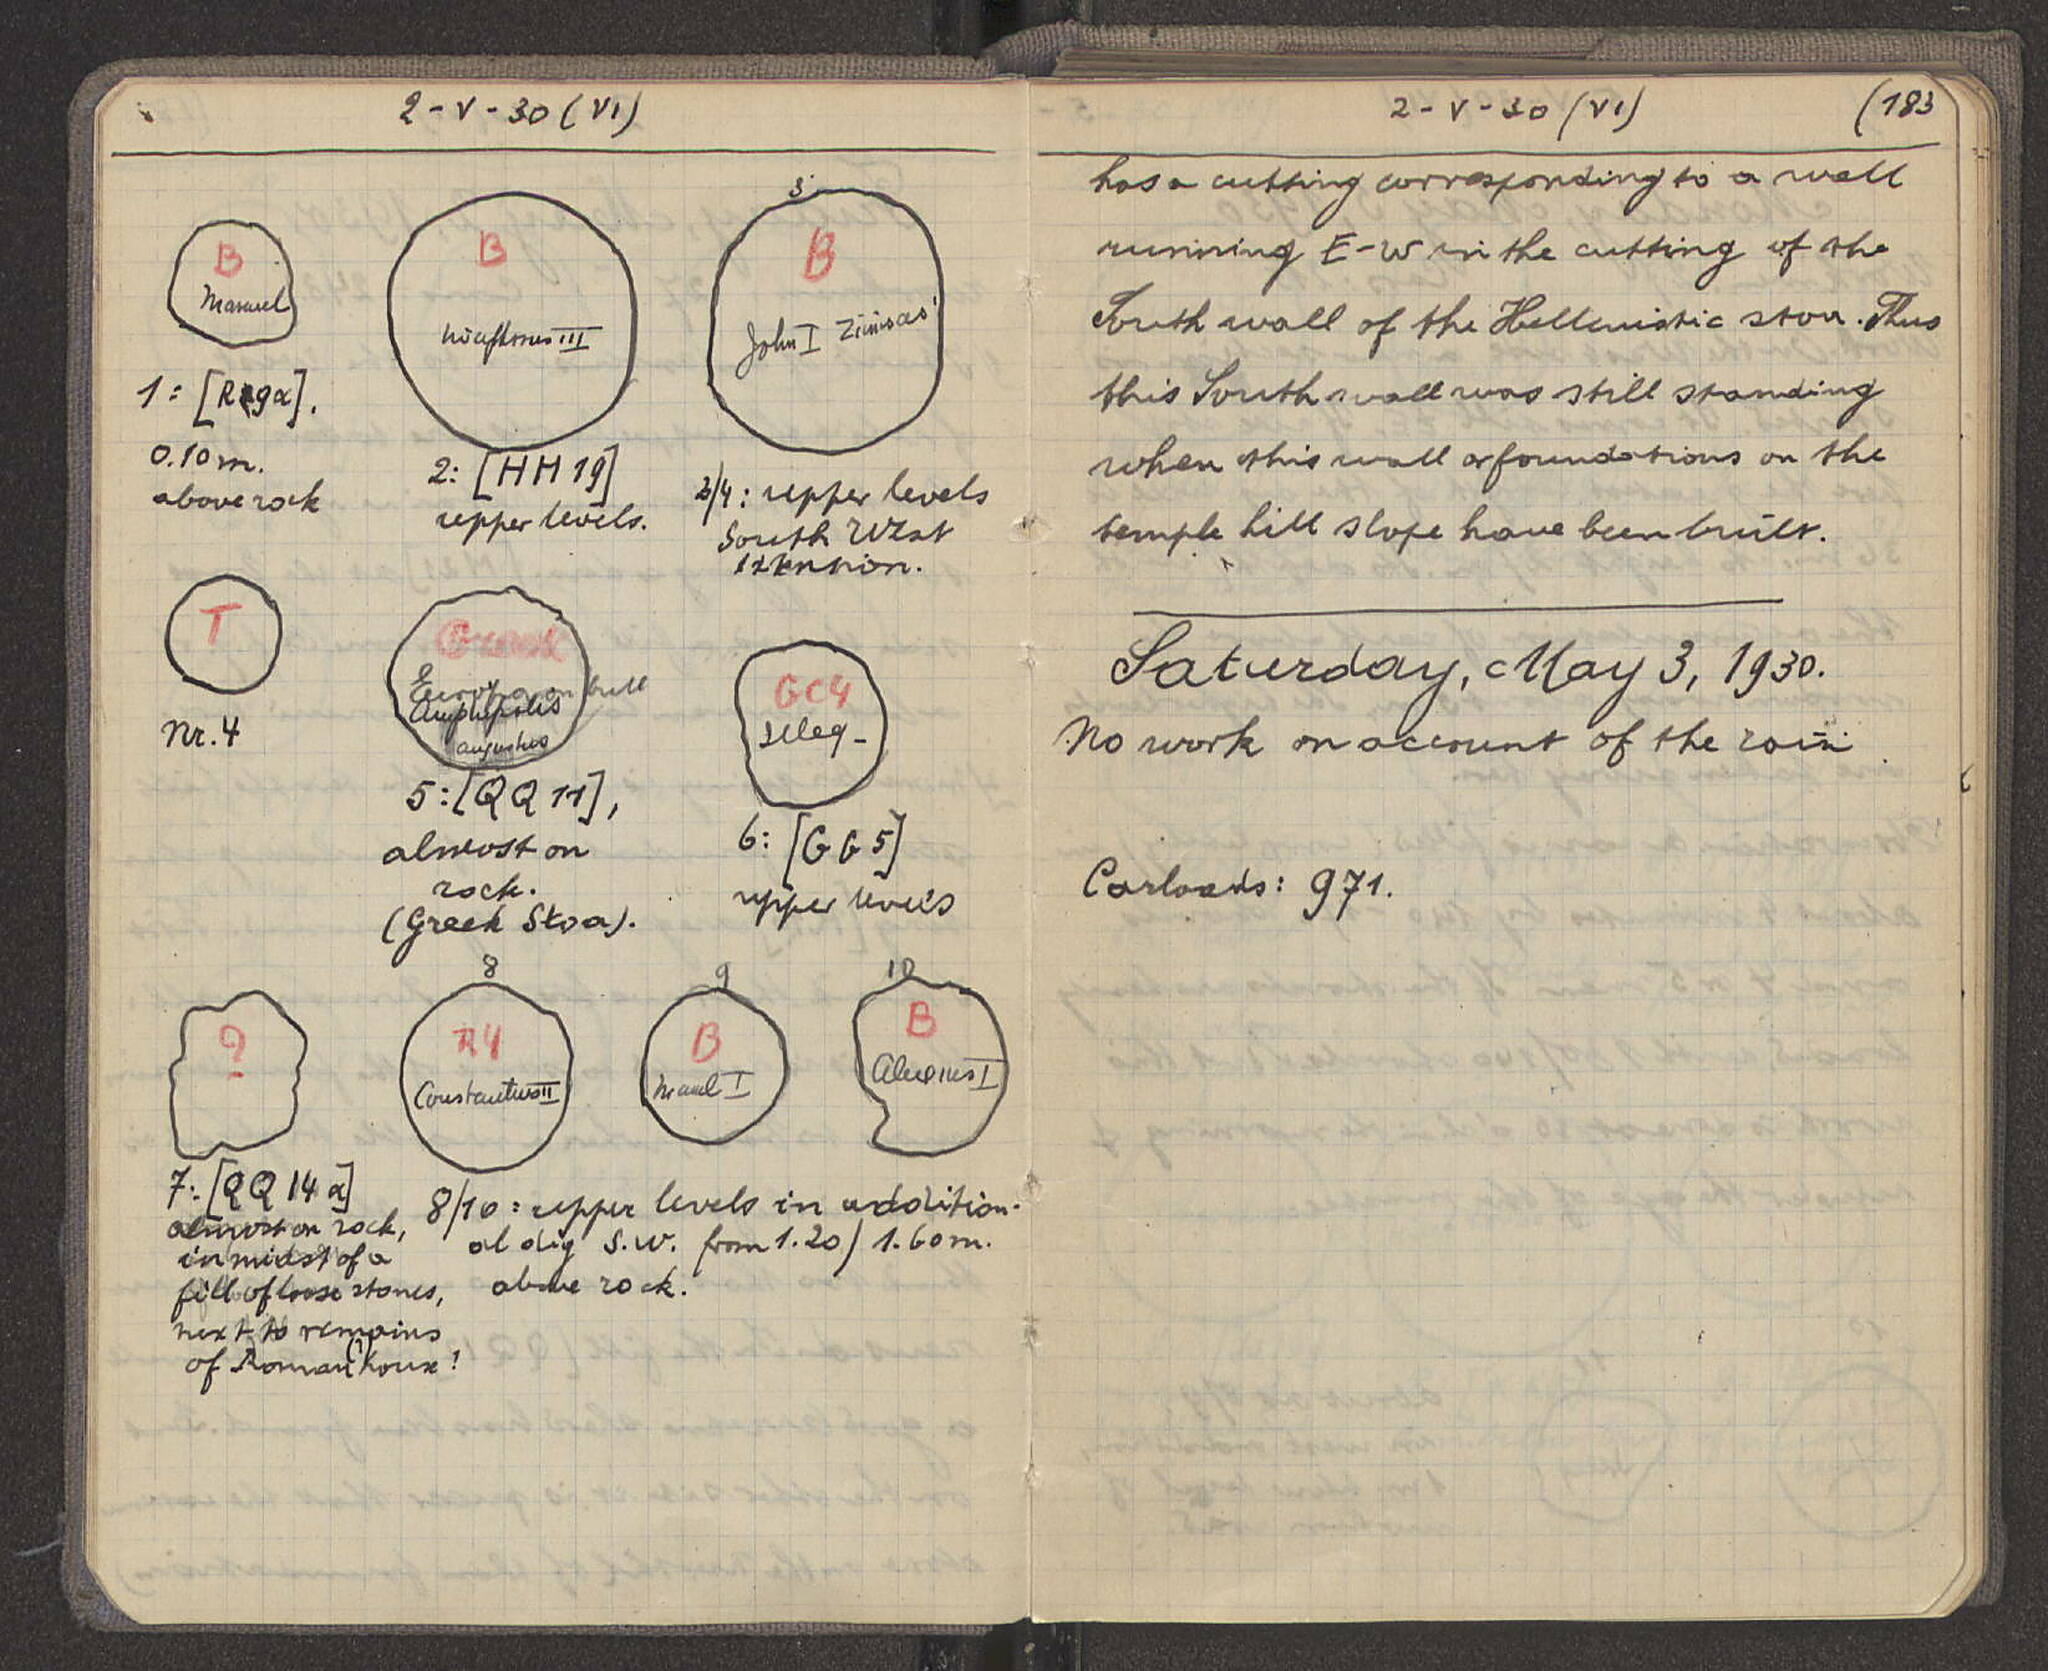 2-V-30 (VI)
B
Manuel
1: [RR9α].
0.10 m.
above rock
B
Nicephorus III
2: [HH19]
upper levels.
3
B
John I Zimisces
3/4: upper levels
South West
Extension.
T
Nr. 4
Greek
Europa on bull
Amphipolis
Augustus
5: [QQ11],
almost on
rock.
(Greek Stoa).
GC4
Seleq-
6: [GG5]
upper levels
?
7: [QQ14α]
almost on rock,
in midst of a
fill of loose stones,
next to remains
of Roman (?) house!
8
R4
Constantius II
9
B
Manuel I
10
B
Alexius I
8/10: upper levels in addition-
al dig S.W. from 1.20/1.60m.
above rock.
2-V-30 (VI)
(183
has a cutting corresponding to a wall
running E-W in the cutting of the
South wall of the Hellenistic stoa. Thus
this South wall was still standing
when this wall or foundations on the
temple hill slope have been built.
Saturday, May 3, 1930.
No work on account of the rain.
Carloads: 971.